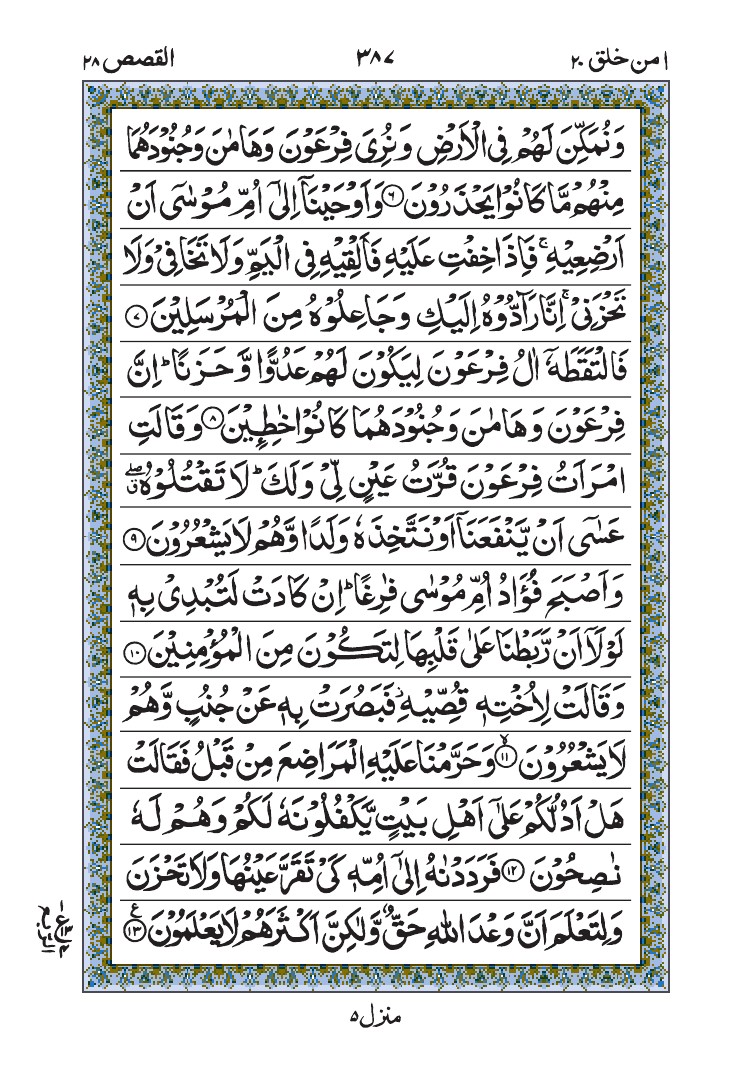 امن خلق ۲۰
۳۸۷
القصص ۲۸
وَنُمَكِّنَ لَهُمْ فِی الْاَرْضِ وَنُرِیَ فِرْعَوْنَ وَهَامٰنَ وَجُنُوْدَهُمَا
مِنْهُمْ مَّا كَانُوْا یَحْذَرُوْنَ ۶ وَاَوْحَیْنَاۤ اِلٰۤی اُمِّ مُوْسٰۤی اَنْ
اَرْضِعِیْهِ ۚ فَاِذَا خِفْتِ عَلَیْهِ فَاَلْقِیْهِ فِی الْیَمِّ وَلَا تَخَافِیْ وَلَا
تَحْزَنِیْ ۚ اِنَّا رَآدُّوْهُ اِلَیْكِ وَجَاعِلُوْهُ مِنَ الْمُرْسَلِیْنَ ۷
فَالْتَقَطَهٗۤ اٰلُ فِرْعَوْنَ لِیَكُوْنَ لَهُمْ عَدُوًّا وَّحَزَنًا ؕ اِنَّ
فِرْعَوْنَ وَهَامٰنَ وَجُنُوْدَهُمَا كَانُوْا خٰطِـِٕیْنَ ۸ وَقَالَتِ
امْرَاَتُ فِرْعَوْنَ قُرَّتُ عَیْنٍ لِّیْ وَلَكَ ؕ لَا تَقْتُلُوْهُ ۖق
عَسٰۤی اَنْ یَّنْفَعَنَاۤ اَوْ نَتَّخِذَهٗ وَلَدًا وَّهُمْ لَا یَشْعُرُوْنَ ۹
وَاَصْبَحَ فُؤَادُ اُمِّ مُوْسٰی فٰرِغًا ؕ اِنْ كَادَتْ لَتُبْدِیْ بِهٖ
لَوْلَاۤ اَنْ رَّبَطْنَا عَلٰی قَلْبِهَا لِتَكُوْنَ مِنَ الْمُؤْمِنِیْنَ ۱۰
وَقَالَتْ لِاُخْتِهٖ قُصِّیْهِ ؗ فَبَصُرَتْ بِهٖ عَنْ جُنُبٍ وَّهُمْ
لَا یَشْعُرُوْنَ ۙ ۱۱ وَحَرَّمْنَا عَلَیْهِ الْمَرَاضِعَ مِنْ قَبْلُ فَقَالَتْ
هَلْ اَدُلُّكُمْ عَلٰۤی اَهْلِ بَیْتٍ یَّكْفُلُوْنَهٗ لَكُمْ وَهُمْ لَهٗ
نٰصِحُوْنَ ۱۲ فَرَدَدْنٰهُ اِلٰۤی اُمِّهٖ كَیْ تَقَرَّ عَیْنُهَا وَلَا تَحْزَنَ
وَلِتَعْلَمَ اَنَّ وَعْدَ اللّٰهِ حَقٌّ وَّلٰكِنَّ اَكْثَرَهُمْ لَا یَعْلَمُوْنَ ۱۳ ع
منزل ۵